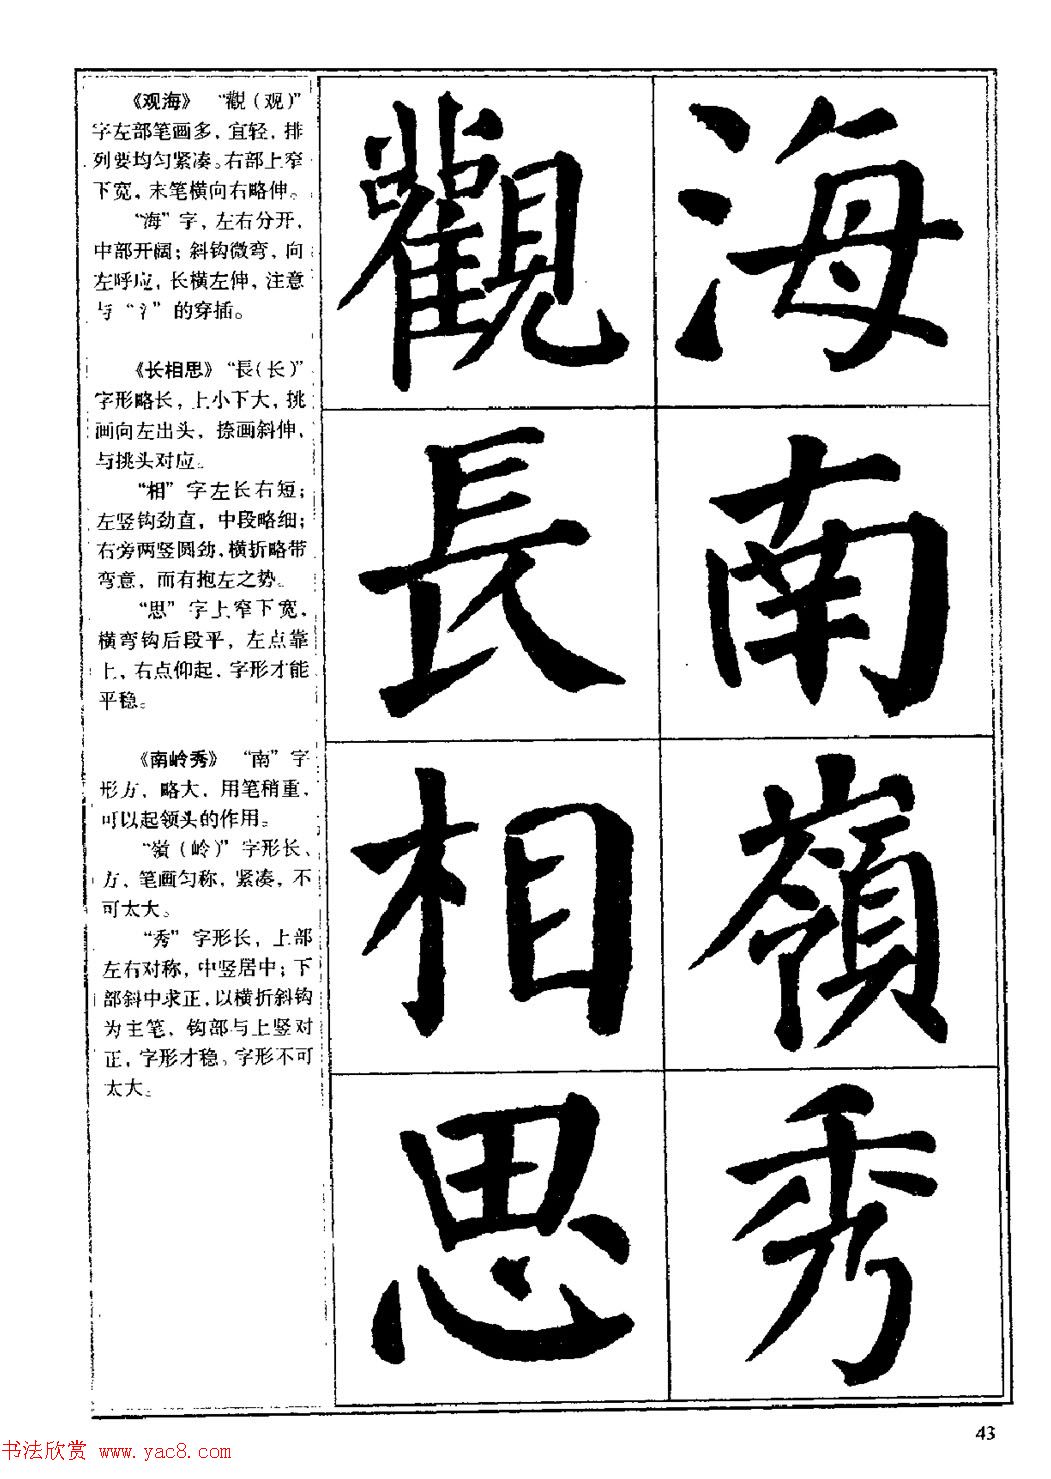 《观海》 “觀（观）”
字左部笔画多，宜轻，排
列要均匀紧凑。右部上窄
下宽，末笔横向右略伸。
“海”字，左右分开，
中部开阔；斜钩微弯，向
左呼应，长横左伸，注意
与“氵”的穿插。
《长相思》“長（长）”
字形略长，上小下大，挑
画向左出头，捺画斜伸，
与挑头对应。
“相”字左长右短；
左竖钩劲直，中段略细；
右旁两竖圆劲，横折略带
弯意，而有抱左之势。
“思”字上窄下宽，
横弯钩后段平，左点靠
上，右点仰起，字形才能
平稳。
《南岭秀》 “南”字
形方，略大，用笔稍重，
可以起领头的作用。
“嶺（岭）”字形长、
方，笔画匀称，紧凑，不
可太大。
“秀”字形长，上部
左右对称，中竖居中；下
部斜中求正，以横折斜钩
为主笔，钩部与上竖对
正，字形才稳。字形不可
太大。
觀海
長
相
思
南
嶺
秀
43
书法欣赏 www.yac8.com